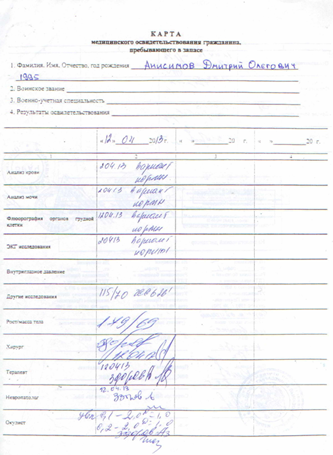 КАРТА
медицинского освидетельствования гражданина,
пребывающего в запасе
1. Фамилия, Имя, Отчество, год рождения Анисимов Дмитрий Олегович
1995
2. Воинское звание
3. Военно-учетная специальность
4. Результаты освидетельствования
«12» 04 2013 г. « » 20 г. « » 20 г.
1 2 3 4
Анализ крови 120413 вариант
нормы
Анализ мочи 120413 вариант
нормы
Флюорография органов грудной 120413 вариант
клетки нормы
ЭКГ исследования 120413 вариант
нормы
Внутриглазное давление
Другие исследования 115/70
Рост/масса тела 179/69
Хирург
Терапевт 120413
здоров
Невропатолог 12.04.13
здоров
Окулист